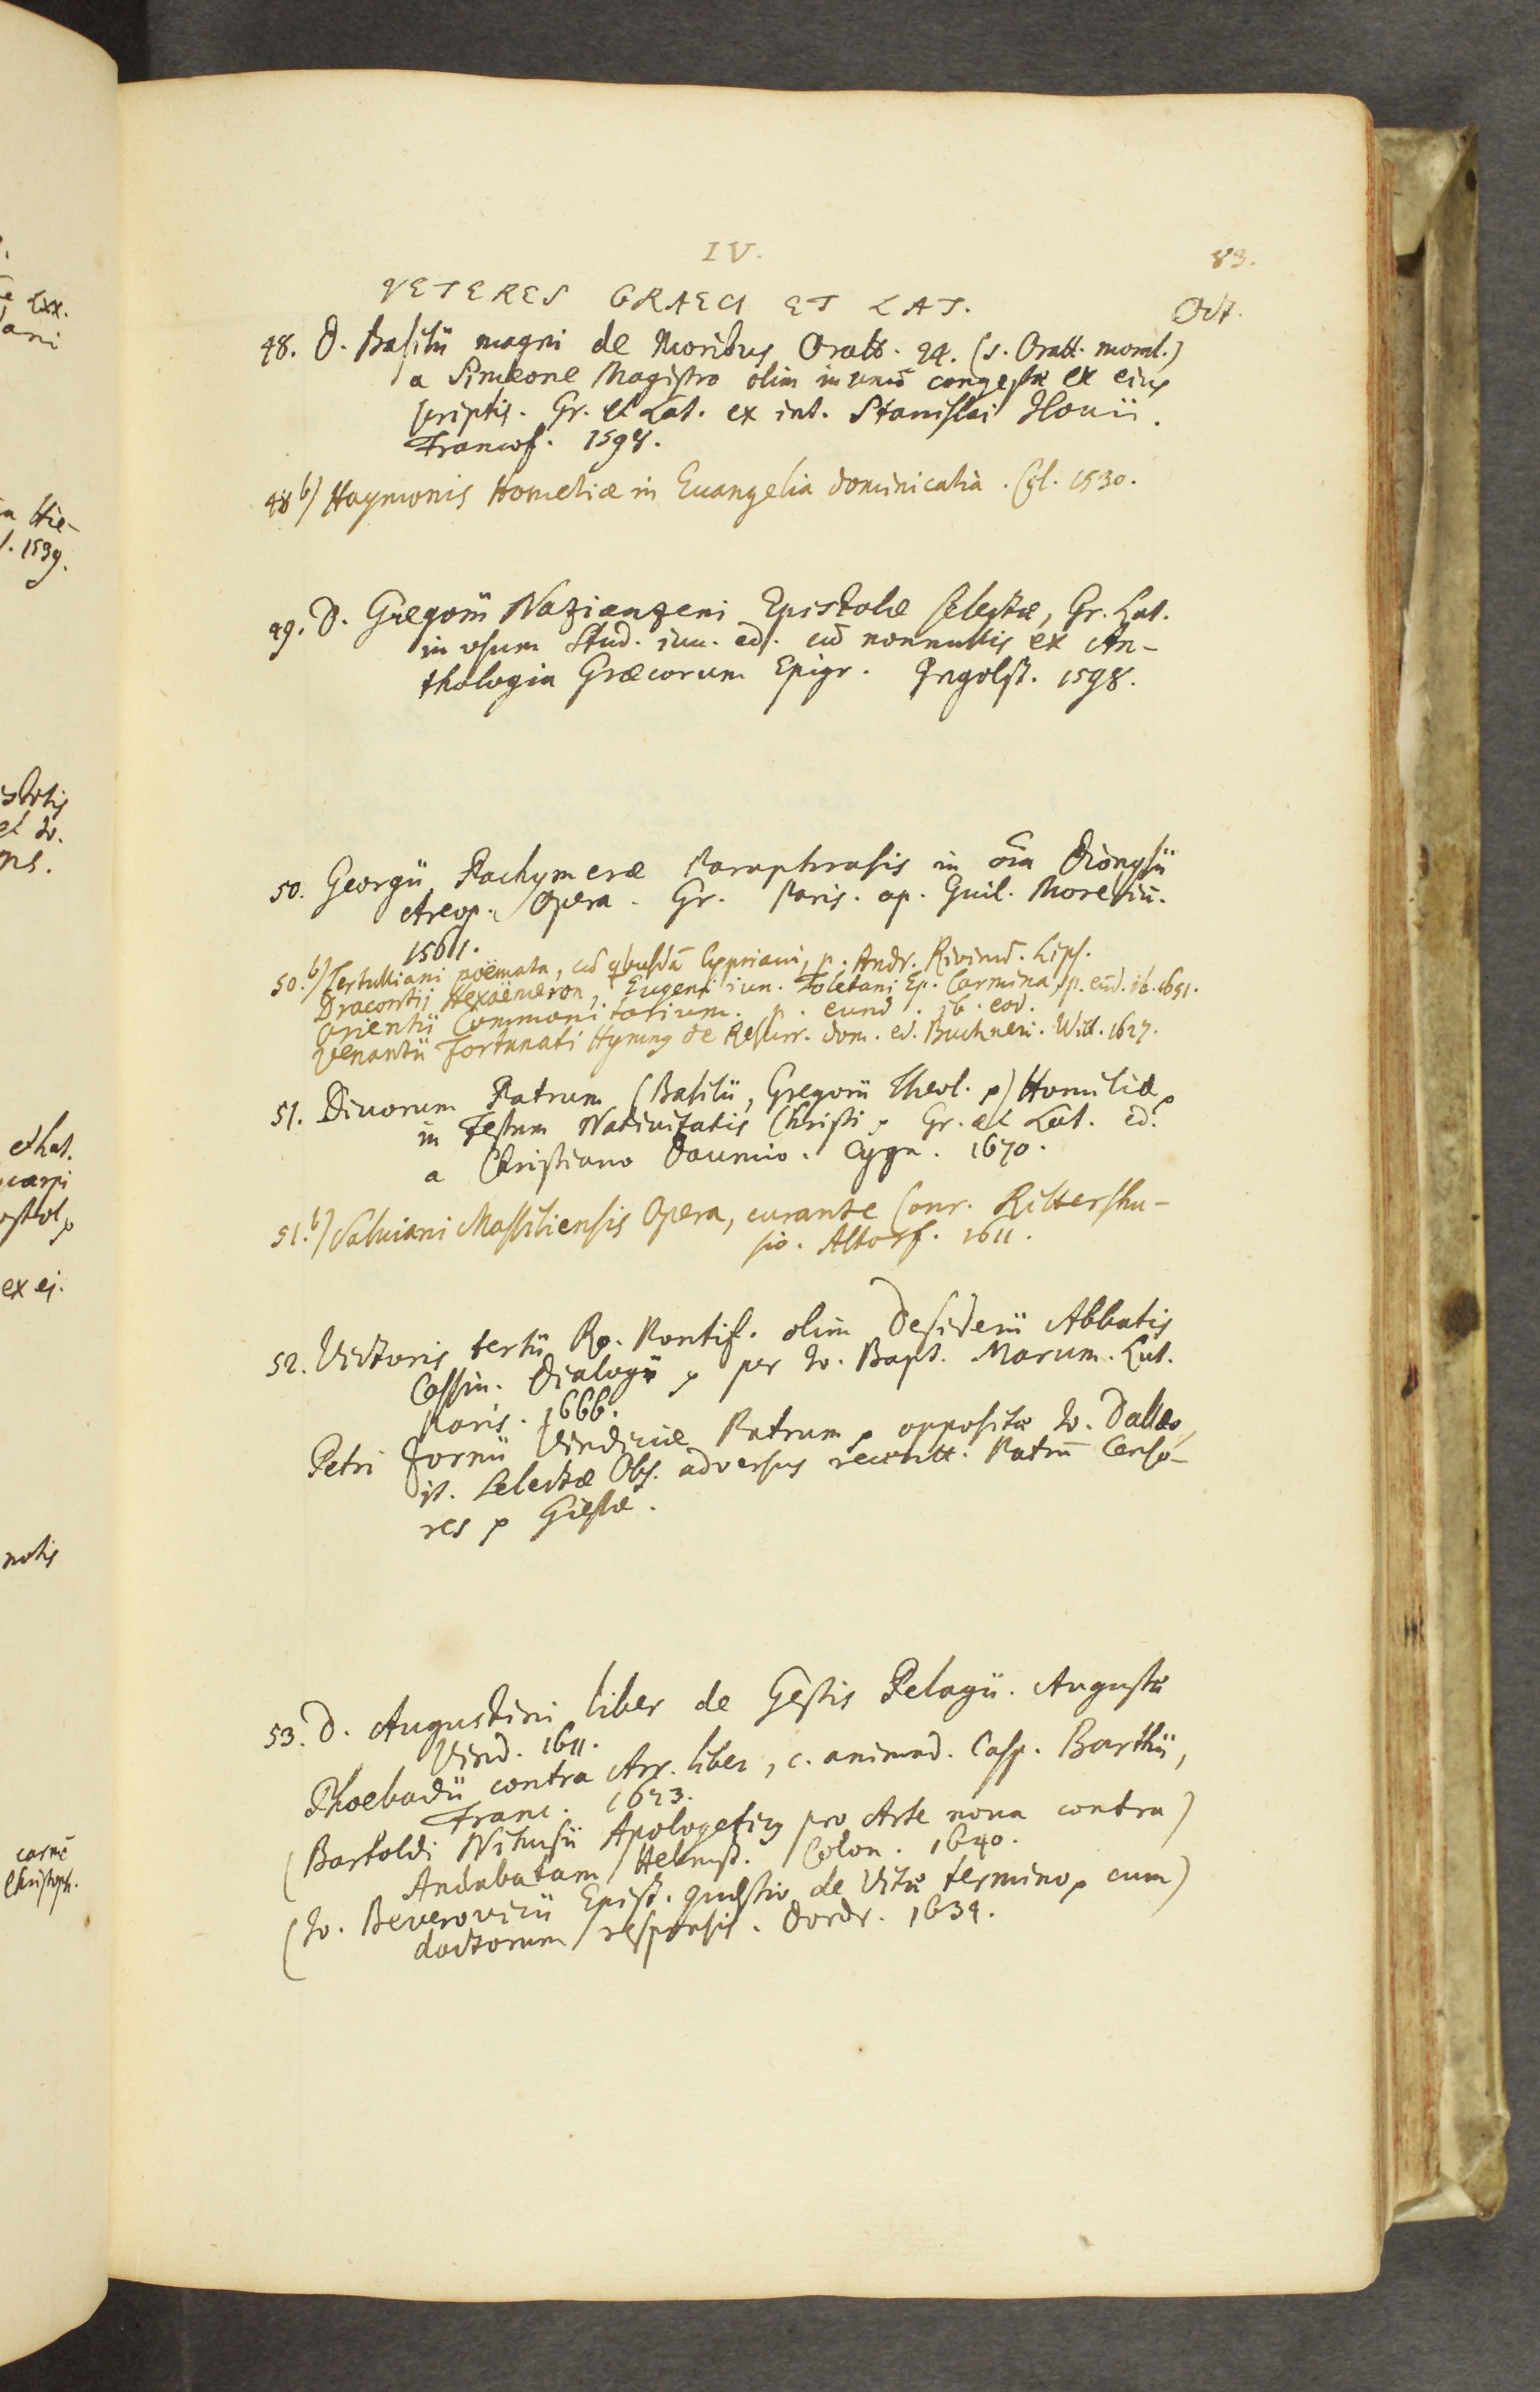 IV.
83.
VETERES GRAECI ET LAT.
Oct.
48. D. Basilii magni de Moribus Oratt. 24. (s. Oratt. moral.)
a Simeone Magistro olim in unū congestæ ex eius
scriptis. Gr. et Lat. ex int. Stanislai Ilouii.
Francof. 1598.
48 b) Haymonis Homeliæ in Euangelia dominicalia. Col. 1530.
49. D. Gregorii Nazianzeni Epistolæ selectæ, Gr. Lat.
in usum Stud. iuu. ed. cū nonnullis ex An-
thologia Græcorum Epigr. Ingolst. 1598.
50. Georgii Pachymeræ Paraphrasis in oīa Dionysii
Areop. Opera. Gr. Paris. ap. Guil. Moreliū.
1561.
50. b) Tertulliani poëmata, cū qbusdā Cypriani, p. Andr. Rivinū. Lips.
Dracontij Hexaëmeron, Eugenii iun. Toletani Ep. Carmina, p. eūd. ib. 1651.
Orientii Commonitorium. p. eund. ib. eod.
Venantii Fortunati Hymnus de Resurr. dom. ed. Buchneri. Witt. 1627.
51. Diuorum Patrum (Basilii, Gregorii Theol. p) Homiliæ
in Festum Natiuitatis Christi p Gr. et Lat. ed.
a Christiano Daumio. Cygn. 1670.
51. b) Saluiani Massiliensis Opera, curante Conr. Rittershu-
sio. Altorf. 1611.
52. Victoris tertii Ro. Pontif. olim Desiderii Abbatis
Cassin. Dialogi p per Io. Bapt. Marum. Lat.
Paris. 1666.
Petri Vindiciæ Patrum p oppositæ Io. Dallæo,
it. Selectæ Obs. adversus recentt. Patrū Censo-
res p Giessæ.
53. D. Augustini liber de Gestis Pelagii. Augustæ
Vind. 1611.
Phoebadii contra Arr. liber, c. animad. Casp. Barthii,
Franc. 1623.
(Bartoldi Nihusii Apologeticus pro Arte noua contra)
Andabatam Helmst. Colon. 1640.
(Io. Beverovicii Epist. quæstio de Vitæ termino p cum)
doctorum responsis. Dordr. 1634.
Lxx.
ani
a Hie-
l. 1539.
et Io.
et Lat.
carpi
ex ej.
notis
carnē
Christoph.